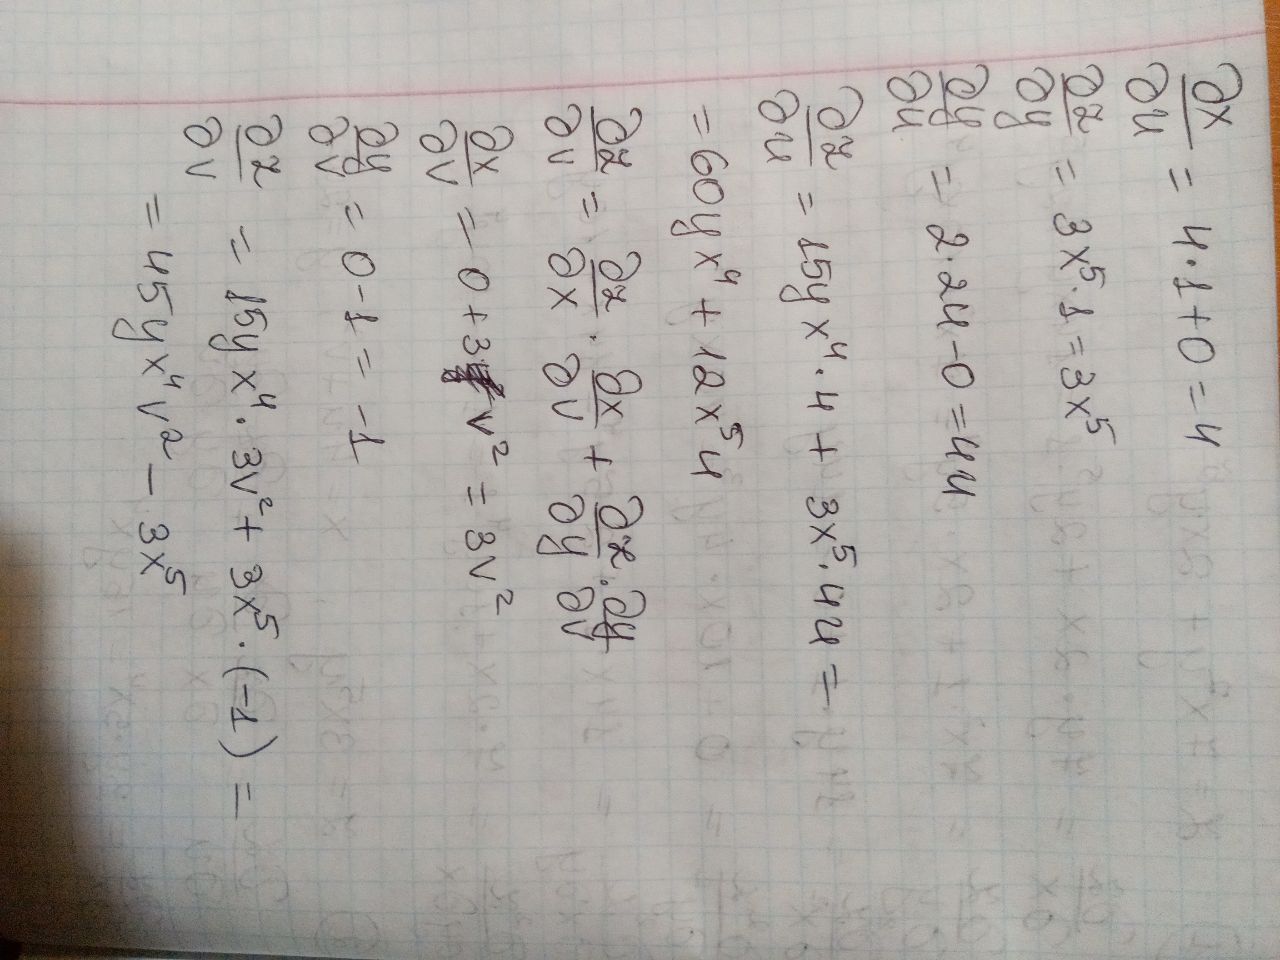 ∂x/∂u = 4·1+0 = 4
∂z/∂y = 3x⁵·1 = 3x⁵
∂y/∂u = 2·2u−0 = 4u
∂z/∂u = 15yx⁴·4 + 3x⁵·4u =
= 60yx⁴ + 12x⁵u
∂z/∂v = ∂z/∂x · ∂x/∂v + ∂z/∂y · ∂y/∂v
∂x/∂v = 0+3v² = 3v²
∂y/∂v = 0−1 = −1
∂z/∂v = 15yx⁴·3v² + 3x⁵·(−1) =
= 45yx⁴v² − 3x⁵